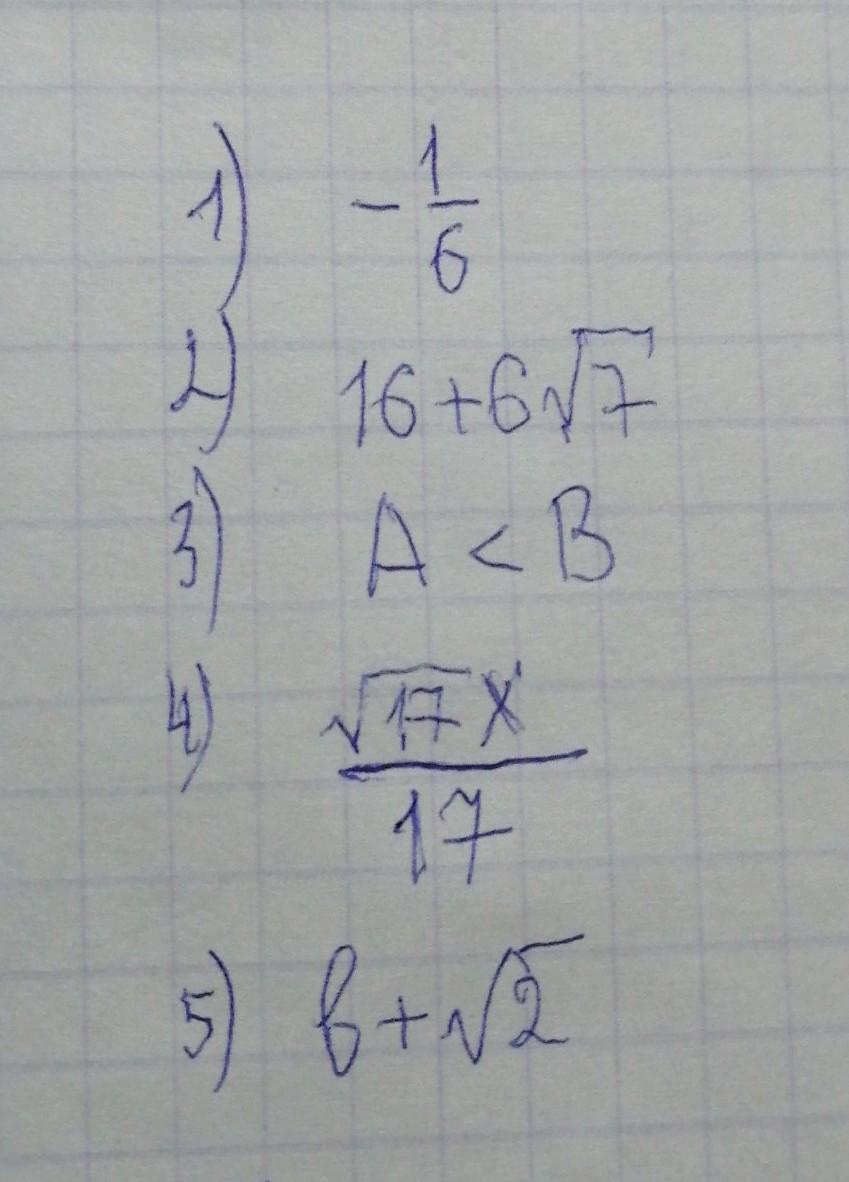 1) -1/6
2) 16+6√7
3) A < B
4) √17 x / 17
5) b+√2